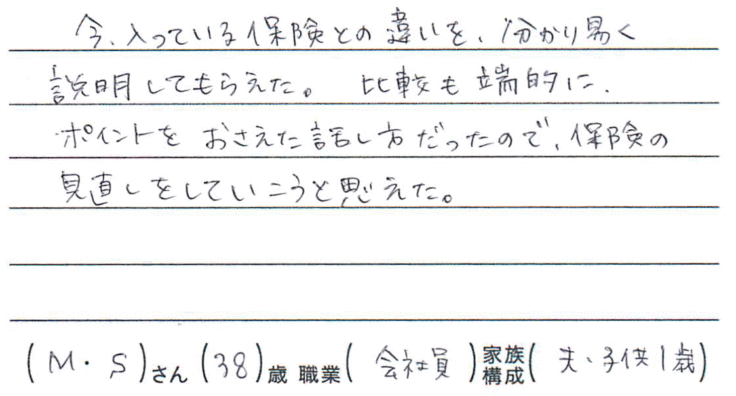 今、入っている保険との違いを、分かり易く
説明してもらえた。 比較も端的に、
ポイントを おさえた話し方だったので、保険の
見直しをしていこうと思えた。
(M・S)さん (38)歳 職業( 会社員 )家族構成( 夫・子供1歳)